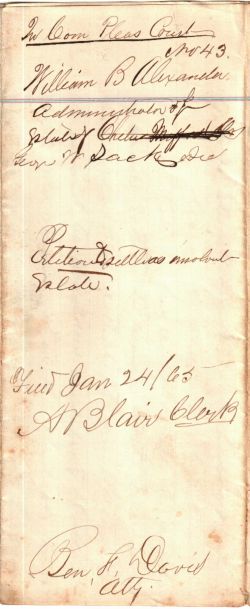 In Com Pleas Court
No 43.
William B Alexander
Administrator of
Estate of
Geo W Sack decd
Petition to settle as insolvent
Estate.
Filed Jan 24/65
A Blair Clerk
Ben. F. Davis
Atty.